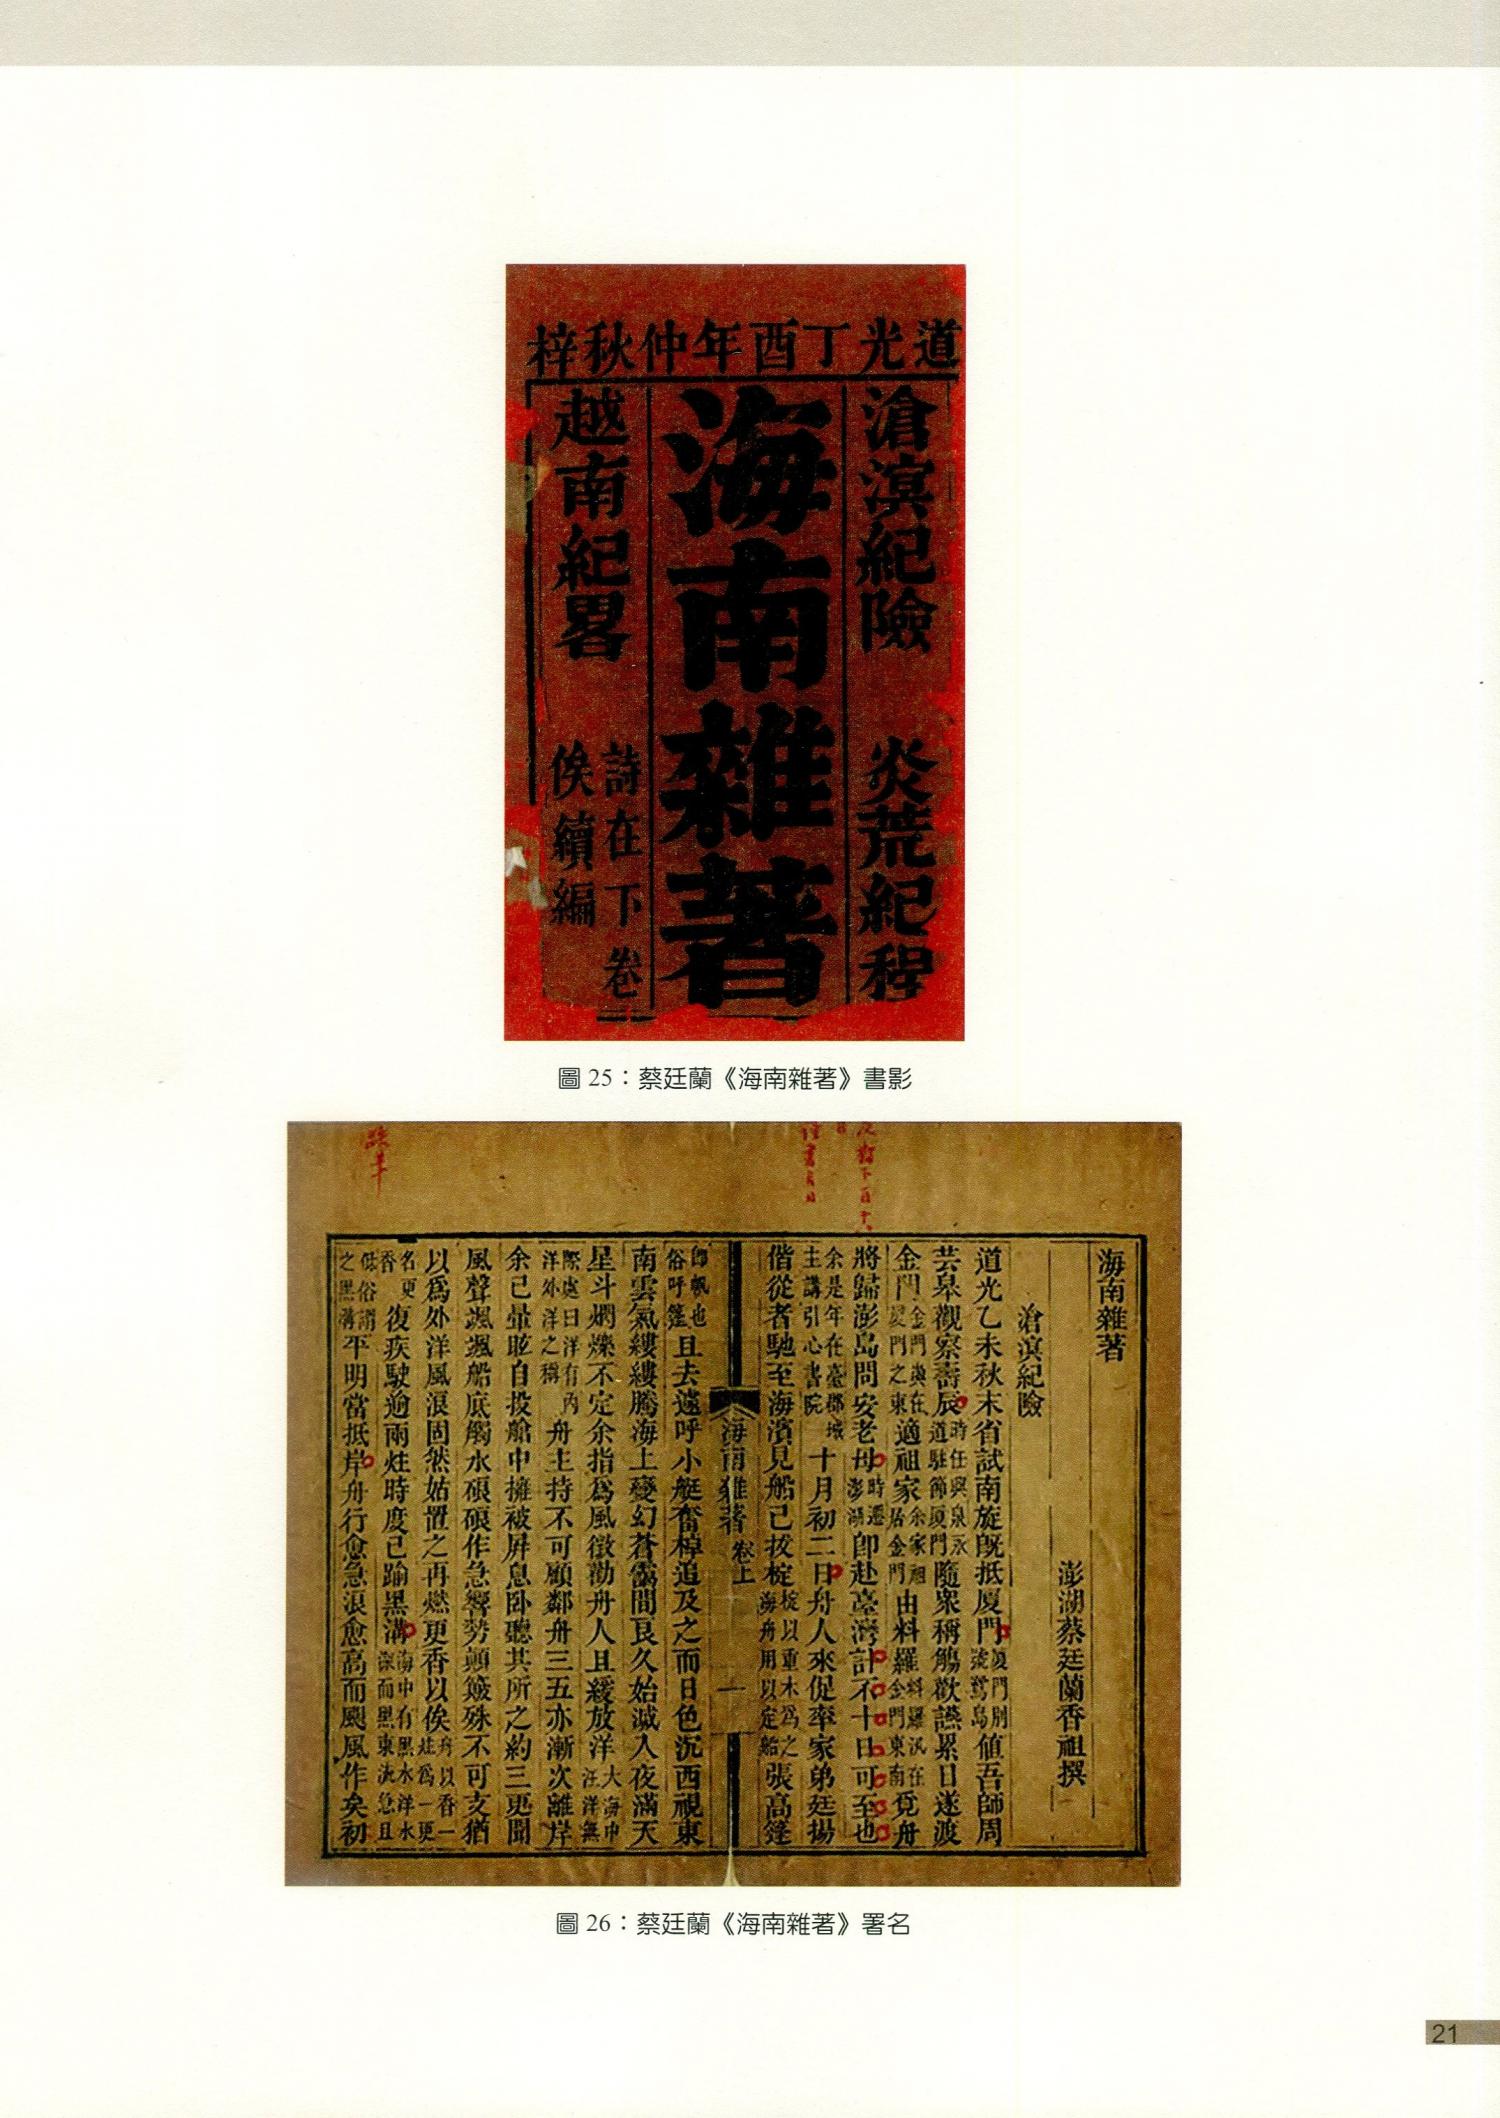 道光丁酉年仲秋梓
滄溟紀險　炎荒紀程
海南雜著
越南紀畧
詩在下卷
俟續編
圖 25：蔡廷蘭《海南雜著》書影
海南雜著
澎湖蔡廷蘭香祖撰
滄溟紀險
道光乙未秋末省試南旋旣抵厦門厦門別號鷺島値吾師周
芸皋觀察壽辰時任興泉永道駐節厦門隨眾稱觴歡讌累日遂渡
金門金門與在厦門之東適祖家余家祖居金門由料羅料羅汛在金門東南覓舟
將歸澎島問安老母時遷澎湖卽赴臺灣計不十日可至也
余是年在臺郡城主講引心書院十月初二日舟人來促率家弟廷揚
偕從者馳至海濱見船已拔椗椗以重木爲之海舟用以定船張高篷
海南雜著 卷上 一
卽帆也俗呼篷且去遠呼小艇奮棹追及之而日色沉西視東
南雲氣縷縷騰海上變幻蒼靄間良久始滅入夜滿天
星斗燜爍不定余指爲風徵勸舟人且緩放洋大海中汪洋無
際處曰洋有內洋外洋之稱舟主持不可顧鄰舟三五亦漸次離岸
余已暈眩自投艙中擁被屏息卧聽其所之約三更聞
風聲颯颯船底觸水硠硠作急響勢顛簸殊不可支猶
以爲外洋風浪固然姑置之再燃更香以俟舟以香一炷爲一更
名更香復疾駛逾兩炷時度已踰黑溝海中有黑水洋水深而黑東流急且
低俗謂之黑溝平明當抵岸舟行愈急浪愈高而颶風作矣初
圖 26：蔡廷蘭《海南雜著》署名
21